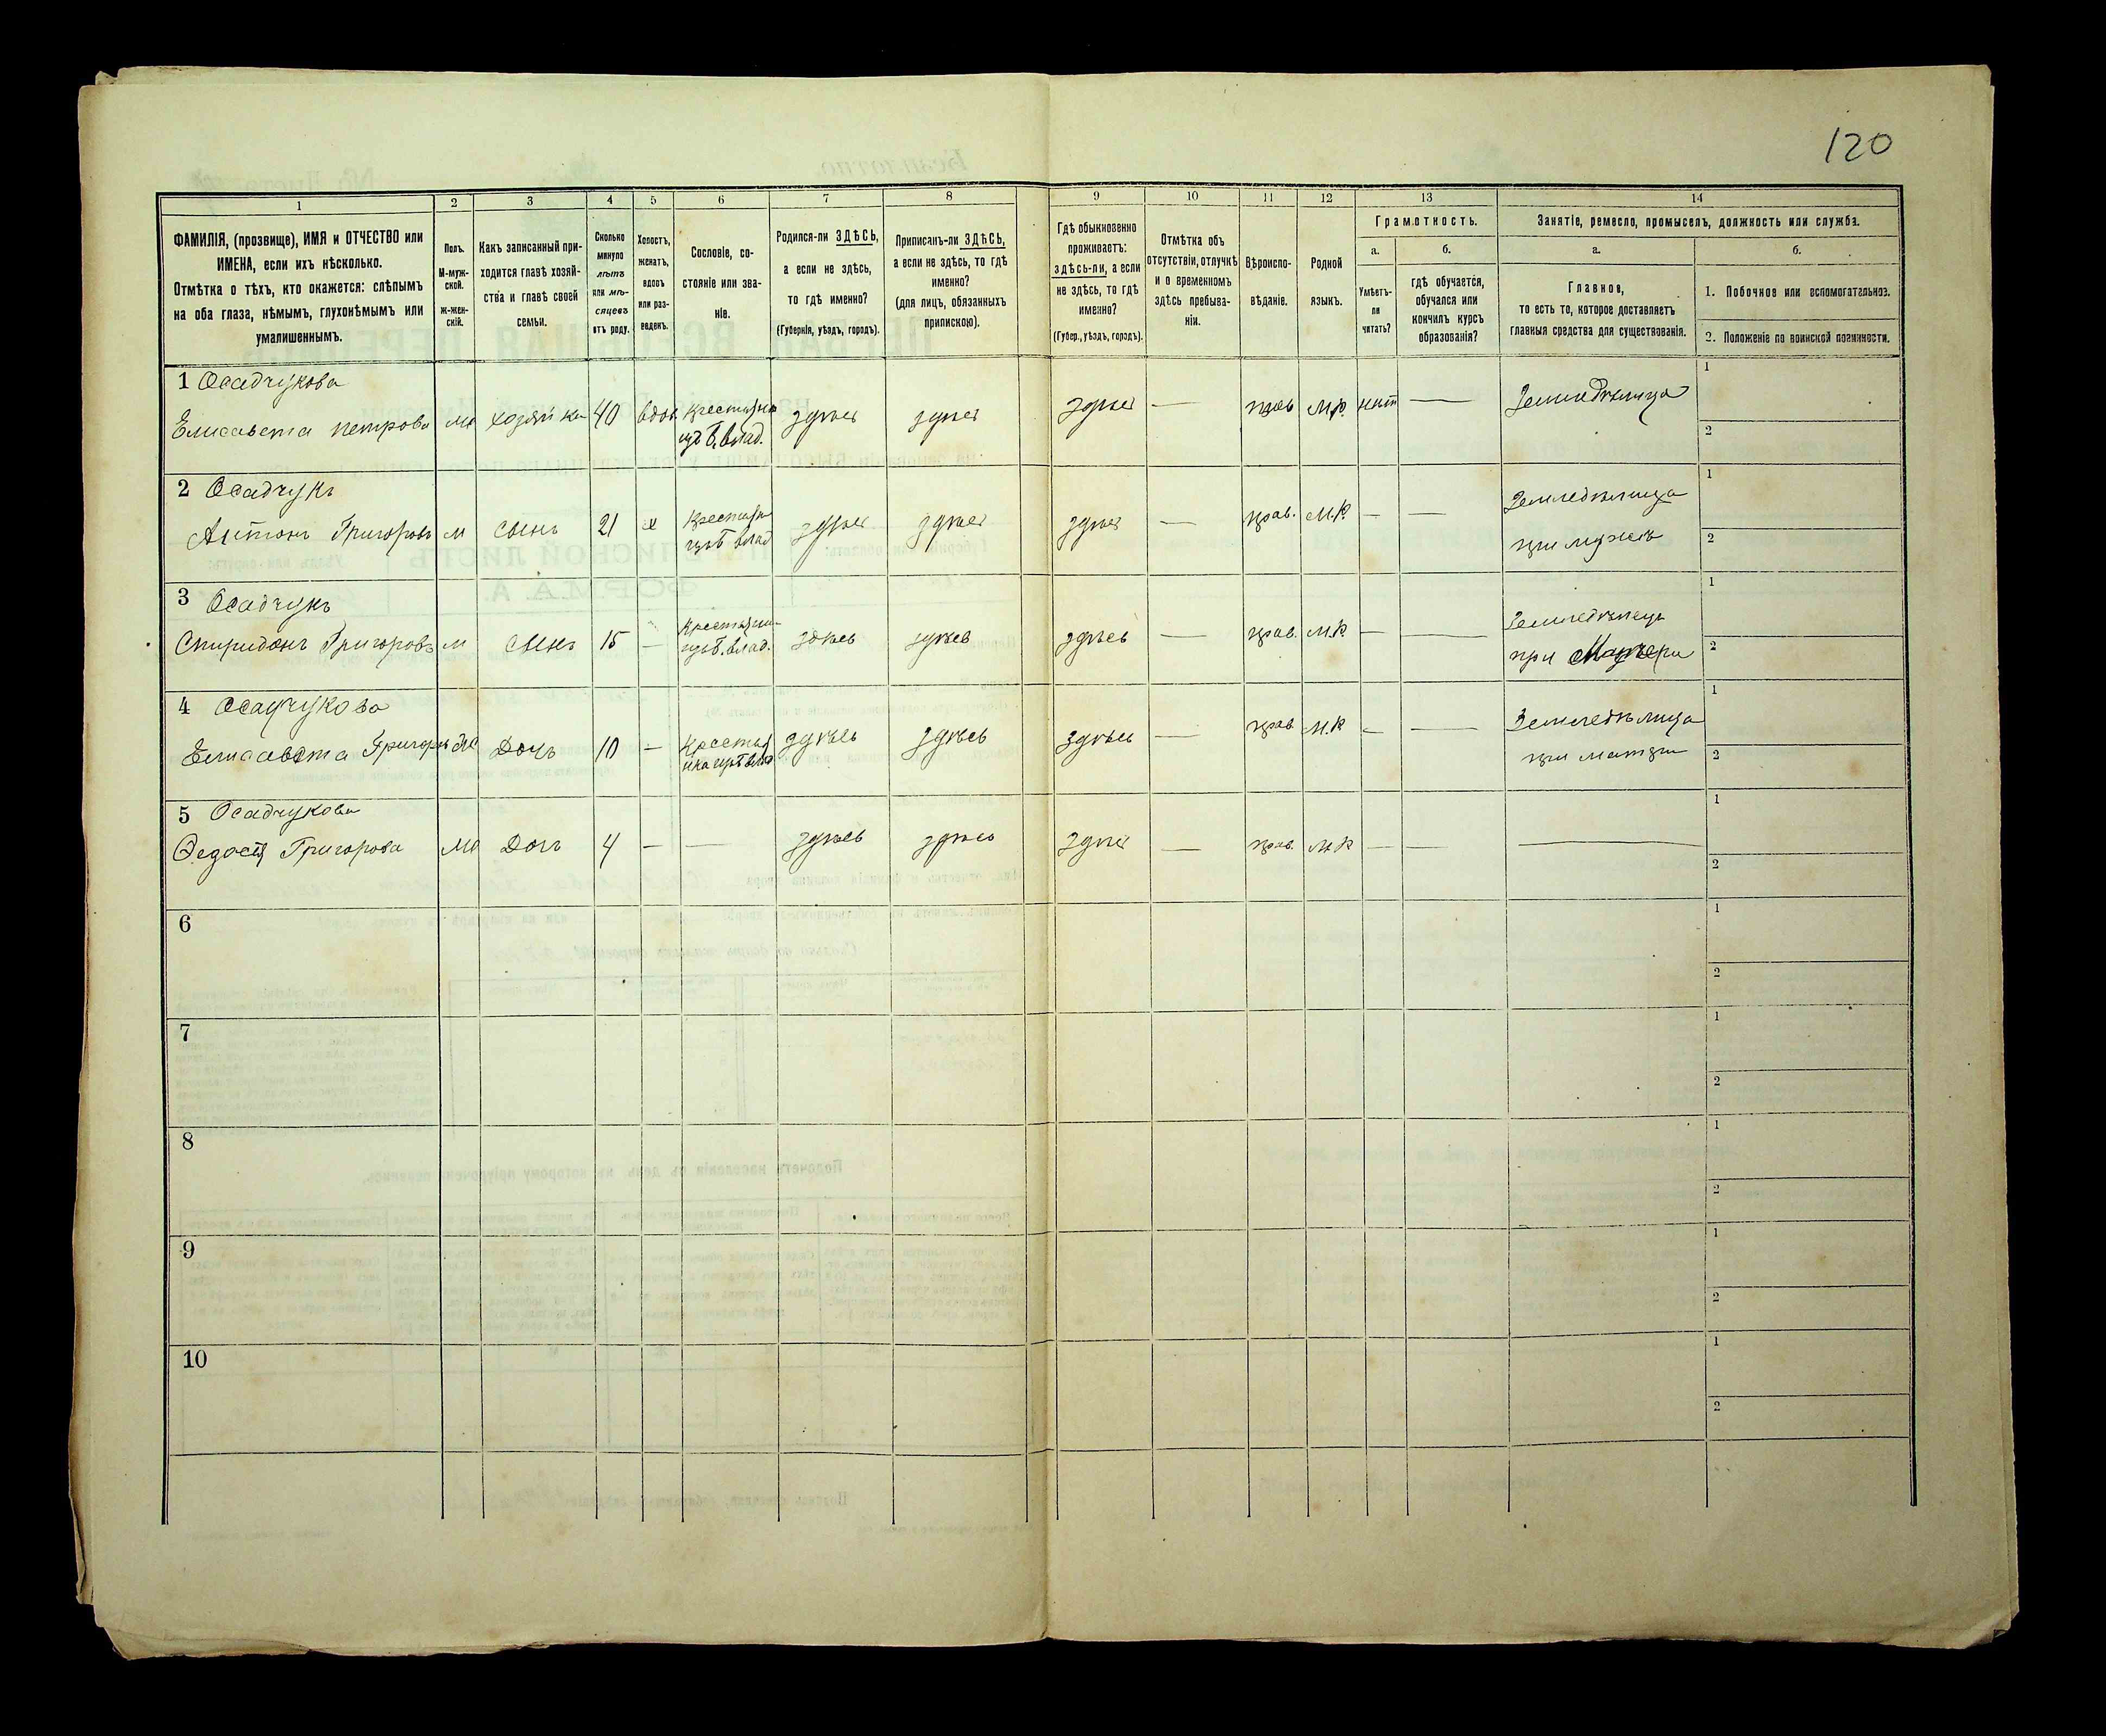 120
1
2
3
4
5
6
7
8
9
10
11
12
13
14
ФАМИЛІЯ, (прозвище), ИМЯ и ОТЧЕСТВО или
ИМЕНА, если ихъ нѣсколько.
Отмѣтка о тѣхъ, кто окажется: слѣпымъ
на оба глаза, нѣмымъ, глухонѣмымъ или
умалишеннымъ.
Полъ.
М-муж-
ской.
ж-жен-
скій.
Какъ записанный при-
ходится главѣ хозяй-
ства и главѣ своей
семьи.
Сколько
минуло
лѣтъ
или мѣ-
сяцевъ
отъ роду.
Холостъ,
женатъ,
вдовъ
или раз-
веденъ.
Сословіе, со-
стояніе или зва-
ніе.
Родился-ли ЗДѢСЬ,
а если не здѣсь,
то гдѣ именно?
(Губернія, уѣздъ, городъ).
Приписанъ-ли ЗДѢСЬ,
а если не здѣсь, то гдѣ
именно?
(для лицъ, обязанныхъ
припискою).
Гдѣ обыкновенно
проживаетъ:
здѣсь-ли, а если
не здѣсь, то гдѣ
именно?
(Губер., уѣздъ, городъ).
Отмѣтка объ
отсутствіи, отлучкѣ
и о временномъ
здѣсь пребыва-
ніи.
Вѣроиспо-
вѣданіе.
Родной
языкъ.
Грамотность.
а.
б.
Умѣетъ-
ли
читать?
гдѣ обучается,
обучался или
кончилъ курсъ
образованія?
Занятіе, ремесло, промыселъ, должность или служба.
а.
б.
Главное,
то есть то, которое доставляетъ
главныя средства для существованія.
1. Побочное или вспомогательное.
2. Положеніе по воинской повинности.
1 Осадчукова
Елисавета петрова
хозяйка 40 вдов крестьянка
изъ б. влад.
здѣсь здѣсь здѣсь — прав М.Р. нит — Земледѣлица
1
2
2 Осадчукъ
Антонъ Григоровъ м сынъ 21 х
изъ б влад
здѣсь здѣсь здѣсь — прав. М.Р. — — Земледѣлица
при
1
2
3 Осадчукъ
Спиридонъ Григоровъ м сынъ 15 —
изъ б. влад.
здѣсь здѣсь здѣсь — прав. М.Р — — Земледѣлецъ
при Матери
1
2
4 Осадчукова
Елисавета Дочь 10 —
здѣсь здѣсь здѣсь — прав М.Р — — Земледѣлица
при матери
1
2
5 Осадчукова
Федосія Григорова Доч 4 — — здѣсь здѣсь здѣсь — прав. М.Р — — —
1
2
6
1
2
7
1
2
8
1
2
9
1
2
10
1
2